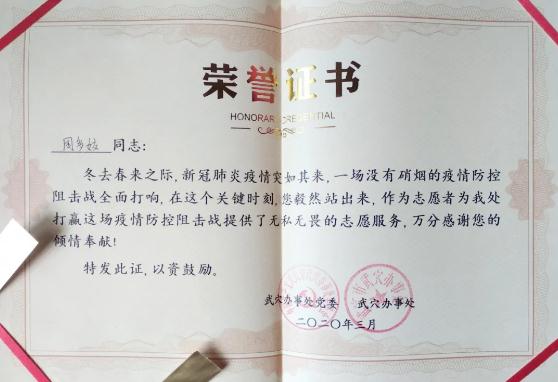 荣誉证书
HONORARY CREDENTIAL
周多姣 同志:
冬去春来之际,新冠肺炎疫情突如其来,一场没有硝烟的疫情防控
阻击战全面打响,在这个关键时刻,您毅然站出来,作为志愿者为我处
打赢这场疫情防控阻击战提供了无私无畏的志愿服务,万分感谢您的
倾情奉献!
特发此证,以资鼓励。
武穴办事处党委 武穴办事处
二〇二〇年三月